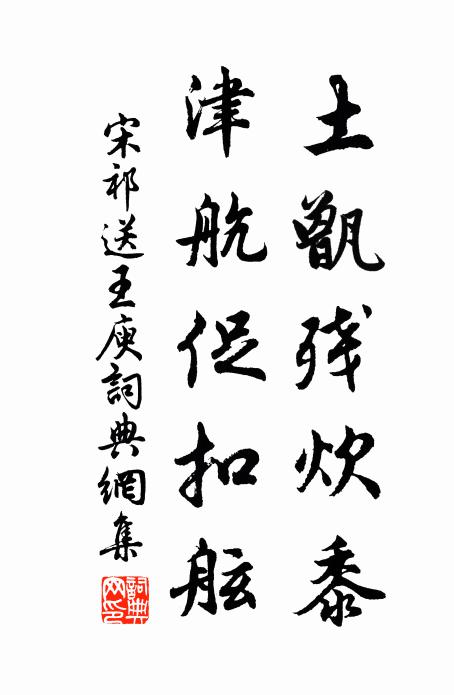 土甑残炊黍
津航促扣舷
宋祁送王庾詞典網集
詞典网印